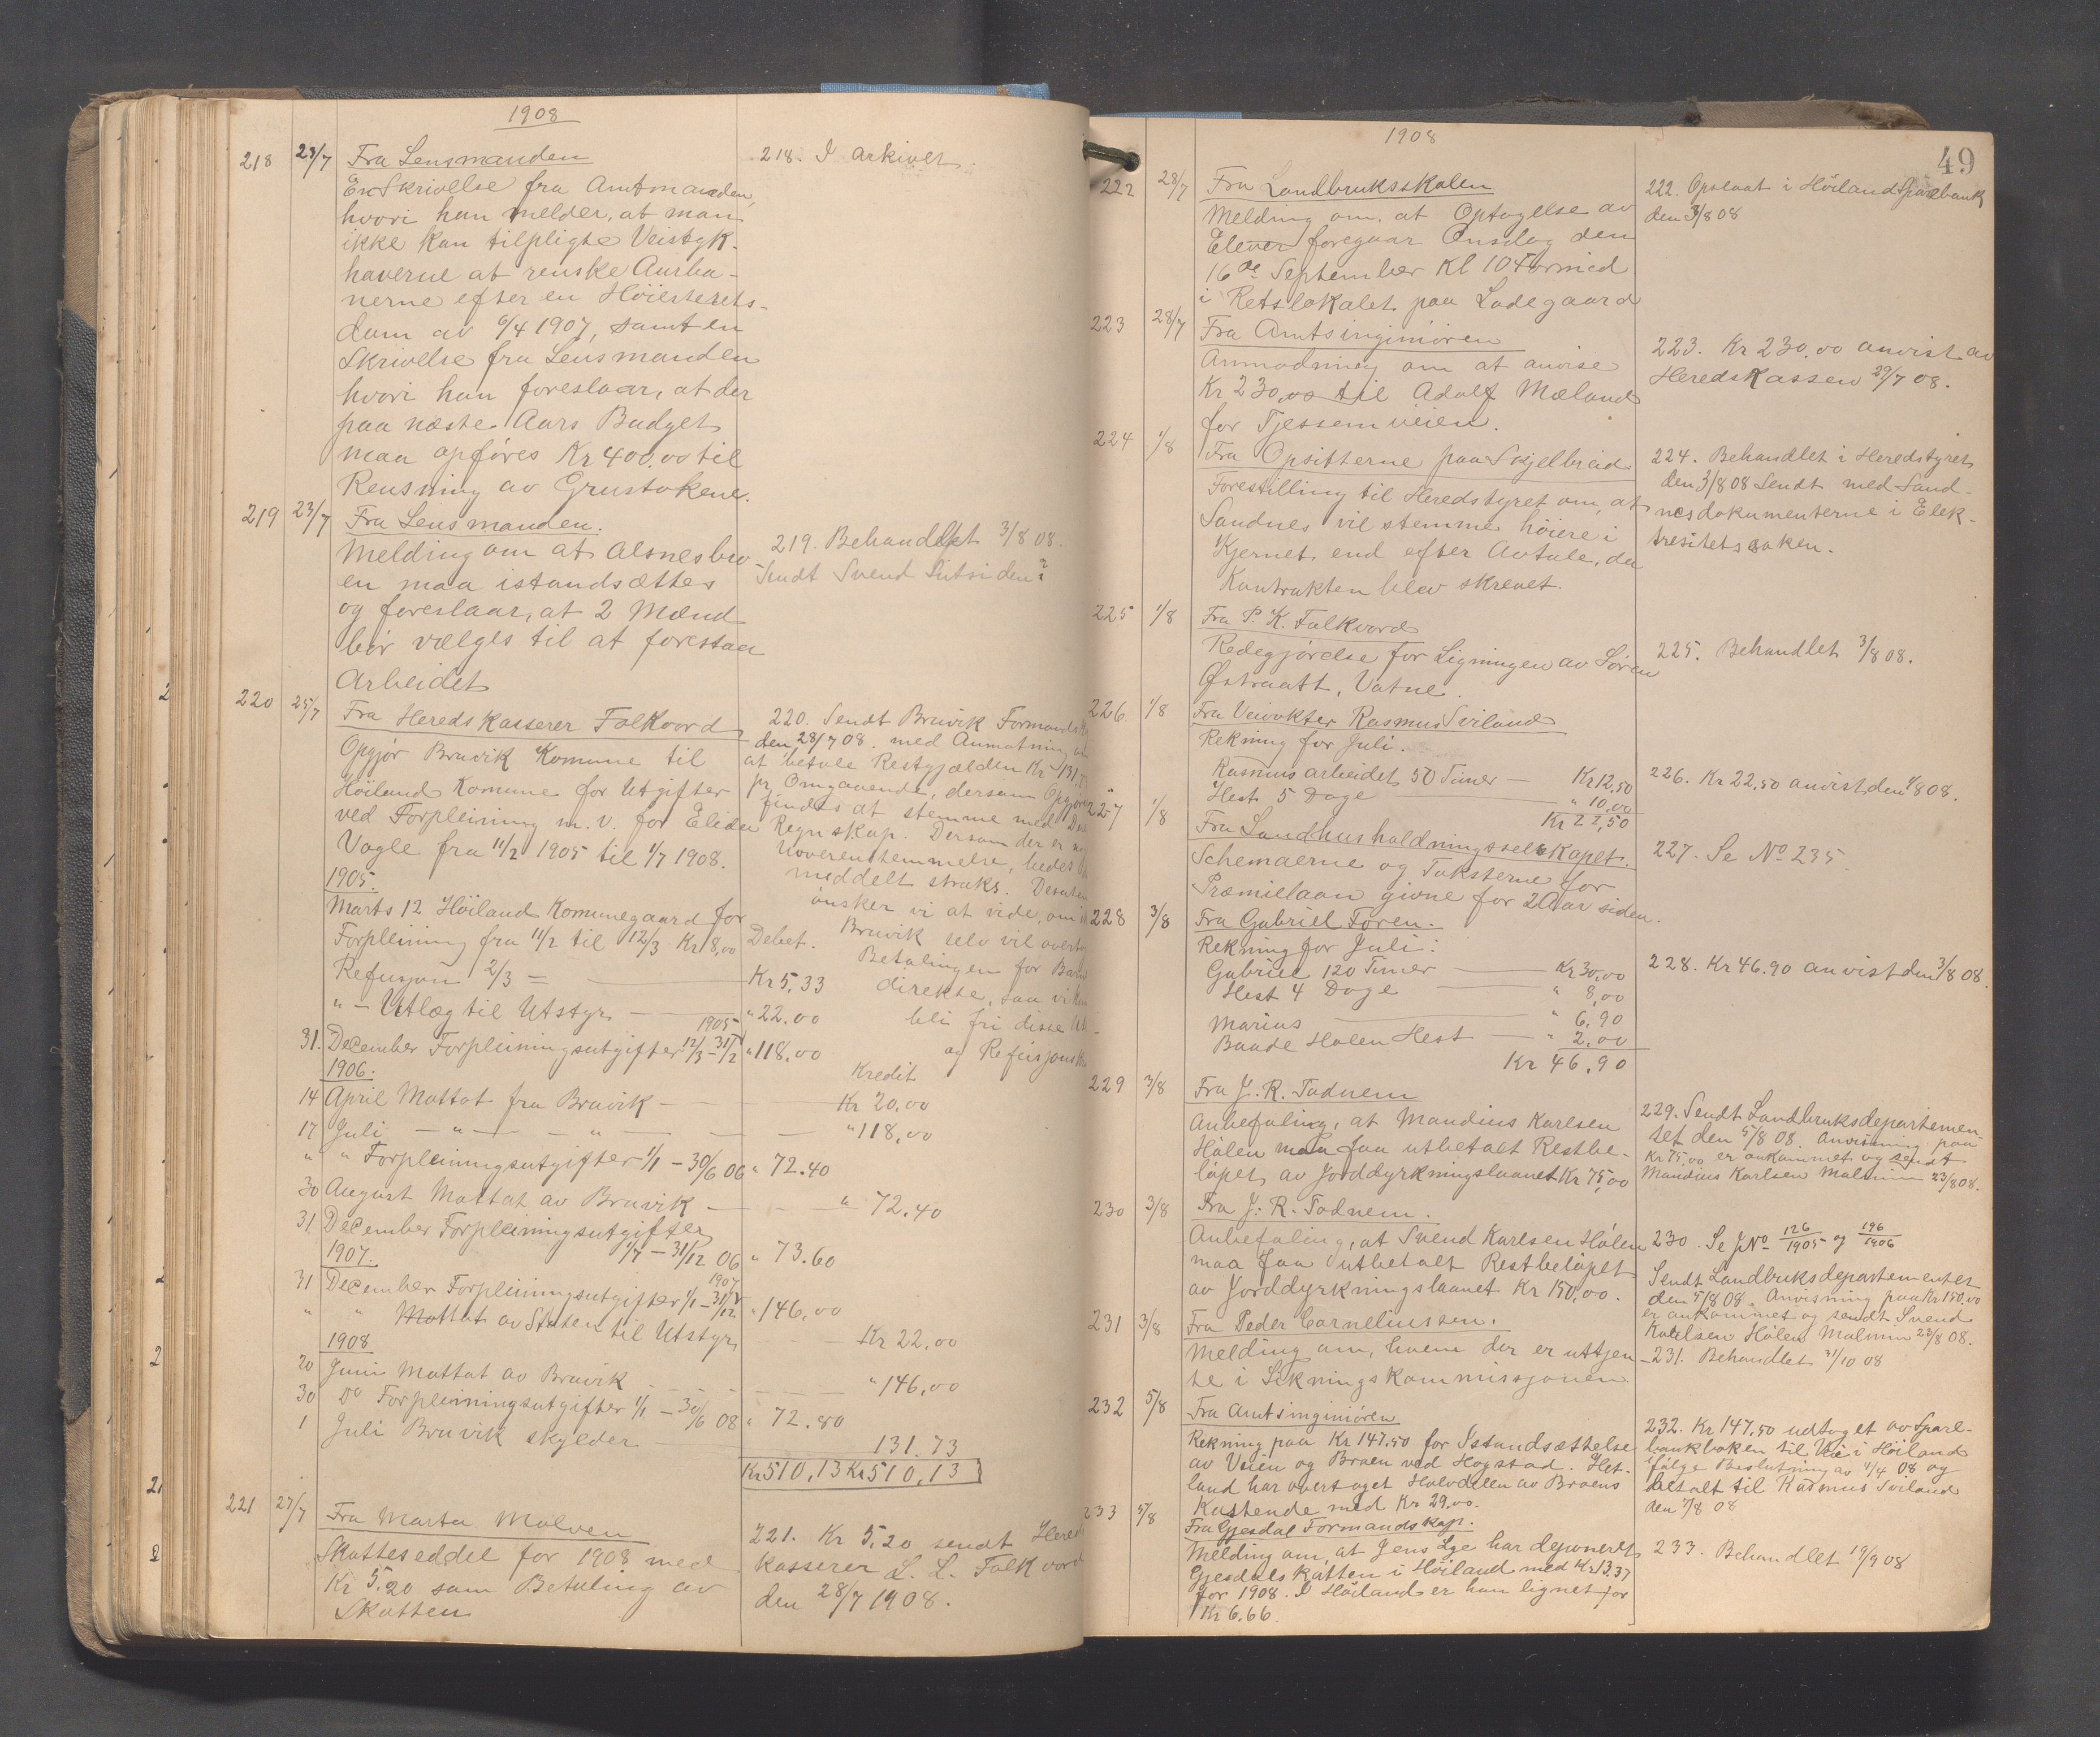 1908
218 23/7 Fra Lensmanden
En Skrivelse fra Amtmanden,
hvori han melder, at man
ikke kan tilpligte Veistyk-
haverne at renske Aurba-
nerne efter en Höiesterets-
dom av 6/4 1907, samt en
Skrivelse fra Lensmanden
hvori han foreslaar, at der
paa næste Aars Budget
maa opföres Kr 400,00 til
Rensning av Grustakene.
218. I Arkivet.
219 23/7 Fra Lensmanden.
Melding om at Alsnesbro-
en maa istandsættes
og foreslaar, at 2 Mænd
bör vælges til at forestaa
Arbeidet
219. Behandlet 3/8 08.
Sendt Svend
220 25/7 Fra Heredskasserer Folkvord
Opgjör Bruvik Komune til
Höiland Komune for Utgifter
ved Forpleining m. v. for Elida
Vagle fra 11/2 1905 til 1/7 1908.
1905.
Marts 12 Höiland Komunegaard for
Forpleining fra 11/2 til 12/3 Kr 8,00 Debet.
Refusjon 2/3 = Kr 5,33
" - Utlæg til Utstyr " 22.00
31. December Forpleiningsutgifter 12/3 - 31/12 1905 " 118,00
Kredit
1906.
14 April Mottat fra Bruvik — Kr 20,00
17 Juli — " — " — " 118,00
" " Forpleiningsutgifter 1/1 - 30/6 06 " 72.40
30 August Mottat av Bruvik — " 72.40
31 December Forpleiningsutgifter
1/7 - 31/12 06 " 73.60
1907.
31 December Forpleiningsutgifter 1/1 - 31/12 1907 " 146,00
" " Mottat av Staten til Utstyr — Kr 22,00
1908
20 Juni Mottat av Bruvik " 146,00
30 Do Forpleiningsutgifter 1/1 - 30/6 08 " 72.80
1 Juli Bruvik skylder 131.73
Kr 510,13 Kr 510,13
220. Sendt Bruvik Formandsk
den 28/7 08. med Anmotning
at betale Restgjælden Kr 131,
pr. Omgaaende, dersom Opgjöret
findes at stemme med
Regnskap. Dersom der er
Uoverenstemmelse, bedes
meddelt straks. Desuten
önsker vi at vide, om
Bruvik selv vil overta
Betalingen for
direkte, saa vi
bli fri disse
og Refusjons
221 27/7 Fra Marta Malven
Skatteseddel for 1908 med
Kr 5,20 som Betaling av
Skatten
221. Kr 5,20 sendt Hered
kasserer L. L. Folkvord
den 28/7 1908.
1908
49
222 28/7 Fra Landbruksskolen
Melding om, at Optagelse av
Elever foregaar Onsdag den
16de September Kl 10 Formid
i Retslokalet paa Ladegaard
222. Opslaat i Höiland Sparebank
den 3/8 08
223 28/7 Fra Amtsingeniören
Anmodning om at anvise
Kr 230,00 til Adolf Mæland
for Tjessemveien.
223. Kr 230,00 anvist av
Heredskassen 29/7 08.
224 1/8 Fra Opsitterne paa Skjelbreid
Forestilling til Heredstyret om, at
Sandnes vil stemme höiere i
Kjernet end efter Avtale, da
Kontrakten blev skrevet.
224. Behandlet i Heredstyret
den 3/8 08 Sendt med Sand-
nesdokumenterne i Elek-
tresitetssaken.
225 1/8 Fra P. K. Folkvord
Redegjörelse for Ligningen av Sören
Østraatt, Vatne.
225. Behandlet 3/8 08.
226 1/8 Fra Veivokter Rasmus Sviland
Rekning for Juli.
Rasmus arbeidet 50 Timer — Kr 12,50
Hest 5 Dage — " 10,00
Kr 22,50
226. Kr 22,50 anvist den 1/8 08.
227 1/8 Fra Landhusholdningsselskapet.
Schemaerne og Taksterne for
Præmielaan givne for 2 Aar siden.
227. Se No 235
228 3/8 Fra Gabriel Foren.
Rekning for Juli:
Gabriel 120 Timer — Kr 30,00
Hest 4 Dage — " 8,00
Marius — " 6,90
Baade Holen Hest — " 2,00
Kr 46,90
228. Kr 46.90 anvist den 3/8 08.
229 3/8 Fra J. R. Todnem
Anbefaling, at Mandius Karlsen
Hölen maa faa utbetalt Restbe-
löpet av Jorddyrkningslaanet Kr 75,00
229. Sendt Landbruksdepartemen-
tet den 5/8 08. Anvisning paa
Kr 75,00 er ankommet og sendt
Mandius Karlsen Malmin 23/8 08.
230 3/8 Fra J. R. Todnem.
Anbefaling, at Svend Karlsen Hölen
maa faa utbetalt Restbelöpet
av Jorddyrkningslaanet Kr 150,00.
230. Se J No 126/1905 og 196/1906
Sendt Landbruksdepartementet
den 5/8 08. Anvisning paa Kr 150,00
er ankommet og sendt Svend
Karlsen Hölen Malmin 23/8 08.
231 3/8 Fra Peder Corneliussen.
Melding om, hvem der er uttjen-
te i Likningskommissjonen
231. Behandlet 31/10 08
232 5/8 Fra Amtsingeniören
Rekning paa Kr 147.50 for Istandsættelse
av Veien og Broen ved Hogstad. Het-
land har overtaget Halvdelen av Broens
Kostende med Kr 29.00.
232. Kr 147.50 udtaget av Spare-
bankboken til Vei i Höiland
ifölge Beslutning av 4/4 08 og
betalt til Rasmus Sviland
den 7/8 08
233 5/8 Fra Gjesdal Formandskap.
Melding om, at Jens Lye har deponeret
Gjesdalsskatten i Höiland med Kr 13,37
for 1908. I Höiland er han lignet for
Kr 6.66.
233. Behandlet 19/9 08